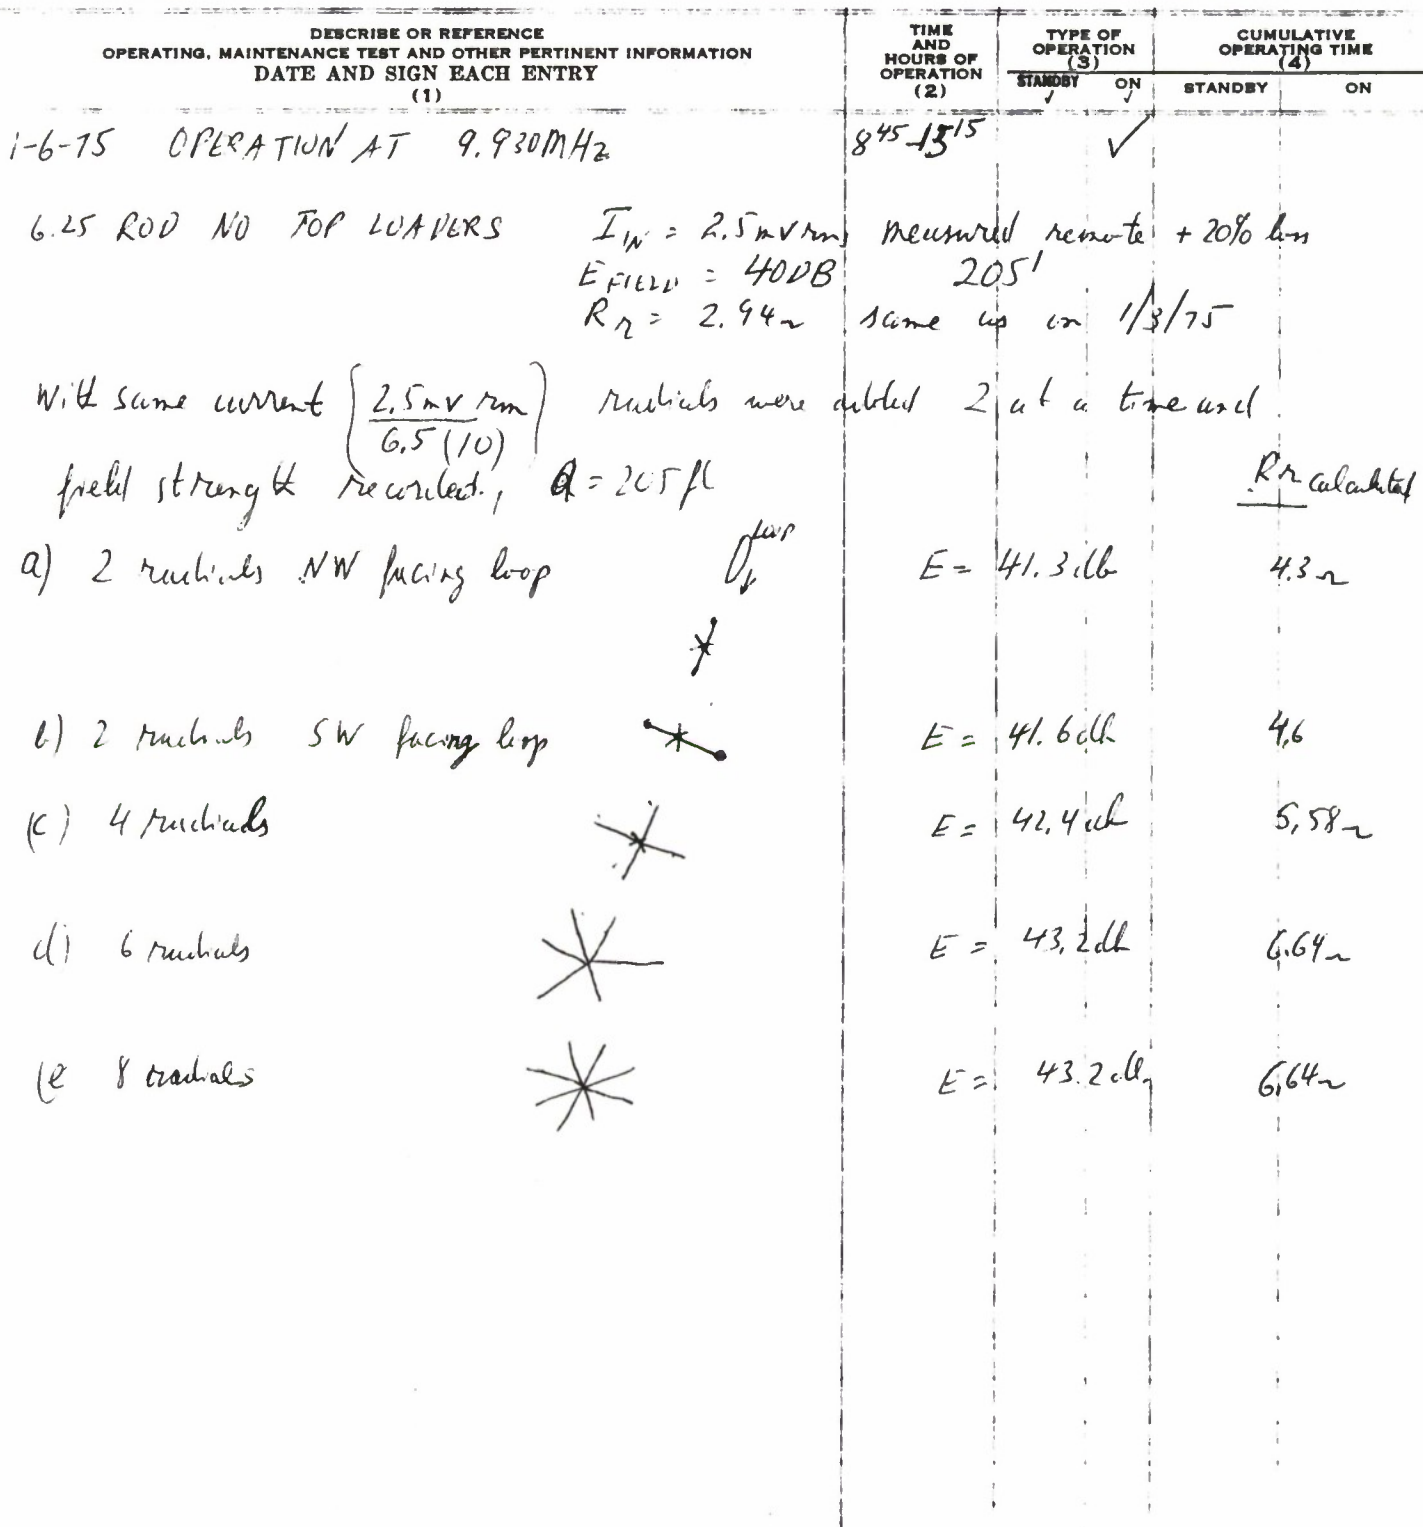 DESCRIBE OR REFERENCE
OPERATING, MAINTENANCE TEST AND OTHER PERTINENT INFORMATION
DATE AND SIGN EACH ENTRY
(1)
TIME
AND
HOURS OF
OPERATION
(2)
TYPE OF
OPERATION
(3)
STANDBY ✓ ON ✓
CUMULATIVE
OPERATING TIME
(4)
STANDBY ON
1-6-75 OPERATION AT 9.930MHz 8⁴⁵-15¹⁵ ✓
6.25 ROD NO TOP LOADERS I_IN = 2.5mv rms measured remote + 20% loss
E_FIELD = 40DB 205'
Rr = 2.94Ω same as on 1/3/75
With same current (2.5mv rms / 6.5(10)) radials were added 2 at a time and
field strength recorded, d = 205 ft Rr calculated
a) 2 radials NW facing loop loop E = 41.3db 4.3Ω
b) 2 radials SW facing loop E = 41.6db 4.6
(c) 4 radials E = 42.4db 5.58Ω
d) 6 radials E = 43.2db 6.64Ω
(e 8 radials E = 43.2db 6.64Ω